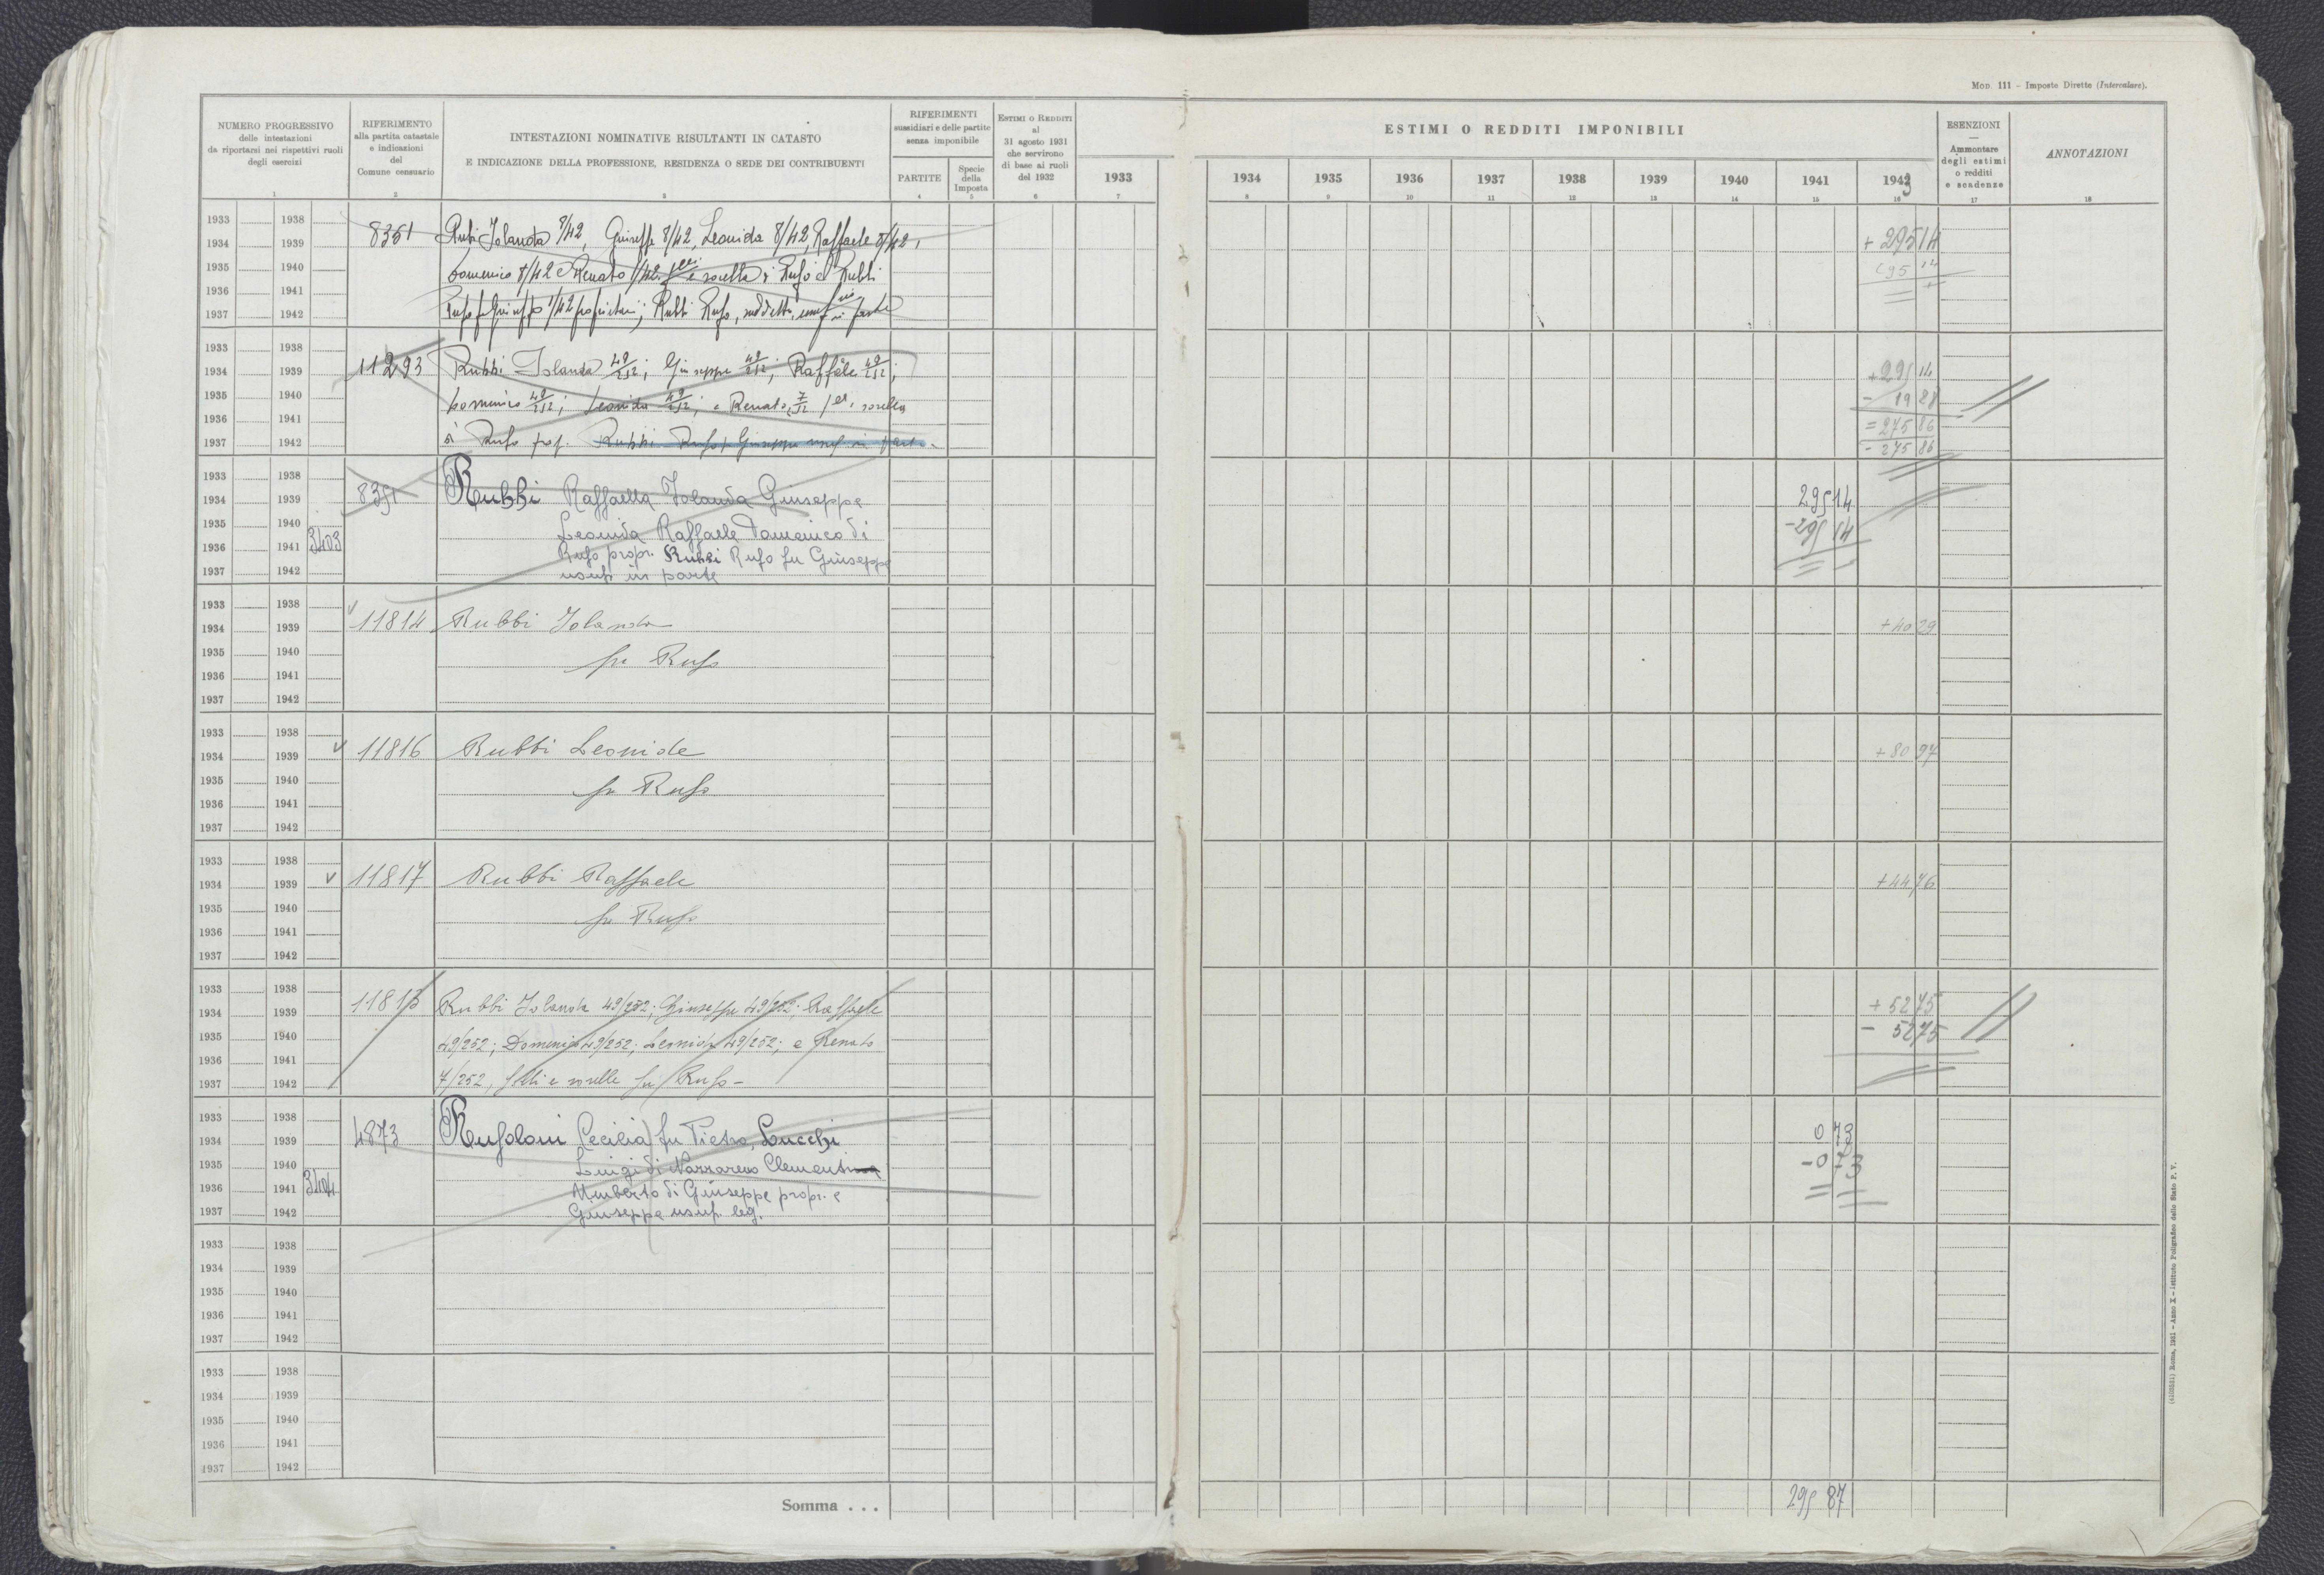 MOD. 111 – Imposte Dirette (Intercalare).
NUMERO PROGRESSIVO
delle intestazioni
da riportarsi nei rispettivi ruoli
degli esercizi
1
RIFERIMENTO
alla partita catastale
e indicazioni
del
Comune censuario
2
INTESTAZIONI NOMINATIVE RISULTANTI IN CATASTO
E INDICAZIONE DELLA PROFESSIONE, RESIDENZA O SEDE DEI CONTRIBUENTI
3
RIFERIMENTI
sussidiari e delle partite
senza imponibile
PARTITE
4
Specie
della
Imposta
5
ESTIMI O REDDITI
al
31 agosto 1931
che servirono
di base ai ruoli
del 1932
6
1933
7
ESTIMI O REDDITI IMPONIBILI
1934 1935 1936 1937 1938 1939 1940 1941 1943
8 9 10 11 12 13 14 15 16
ESENZIONI
—
Ammontare
degli estimi
o redditi
e scadenze
17
ANNOTAZIONI
18
1933 1938
1934 1939 8351 Iolanda Giuseppe 8/42, Leonida 8/42, Raffaele 8/42, + 295 14
1935 1940 Domenico 8/42 e Renato e sorella di Rufo e Rubbi
1936 1941
1937 1942 Rufo fu Giuseppe 1/42 proprietari; Rubbi Rufo, suddetto, in parte
1933 1938
1934 1939 11293 Rubbi Iolanda 49/252; Giuseppe 49/252; Raffaele 49/252; + 295 14
1935 1940 Domenico 49/252; Leonida 49/252; e Renato, sorella - 19 28
1936 1941 = 275 86
1937 1942 di Rufo prop. Rubbi Rufo fu Giuseppe usuf. in parte - 275 86
1933 1938
1934 1939 8351 Rubbi Raffaella Iolanda Giuseppe 295 14
1935 1940 Leonida Raffaele Domenico di - 295 14
1936 1941 3403 Rufo propr. Rubbi Rufo fu Giuseppe
1937 1942 usuf. in parte
1933 1938
1934 1939 11814 Rubbi Iolanda + 40 29
1935 1940 fu Rufo
1936 1941
1937 1942
1933 1938
1934 1939 11816 Rubbi Leonide + 80 97
1935 1940 fu Rufo
1936 1941
1937 1942
1933 1938
1934 1939 11817 Rubbi Raffaele + 44 76
1935 1940 fu Rufo
1936 1941
1937 1942
1933 1938
1934 1939 Rubbi Iolanda 49/252; Giuseppe 49/252; Raffaele + 52 75
1935 1940 49/252; Domenico 49/252; Leonida 49/252; e Renato - 52 75
1936 1941
1937 1942 7/252, f.lli e sorelle fu Rufo -
1933 1938
1934 1939 4873 Rufoloni Cecilia fu Pietro, Lucchi 0 73
1935 1940 Luigi di Nazzareno Clementina - 0 73
1936 1941 3404 Umberto di Giuseppe propr. e
1937 1942 Giuseppe usuf. leg.
1933 1938
1934 1939
1935 1940
1936 1941
1937 1942
1933 1938
1934 1939
1935 1940
1936 1941
1937 1942
Somma . . . 295 87
Roma, 1931 – Anno X – Istituto Poligrafico dello Stato P. V.